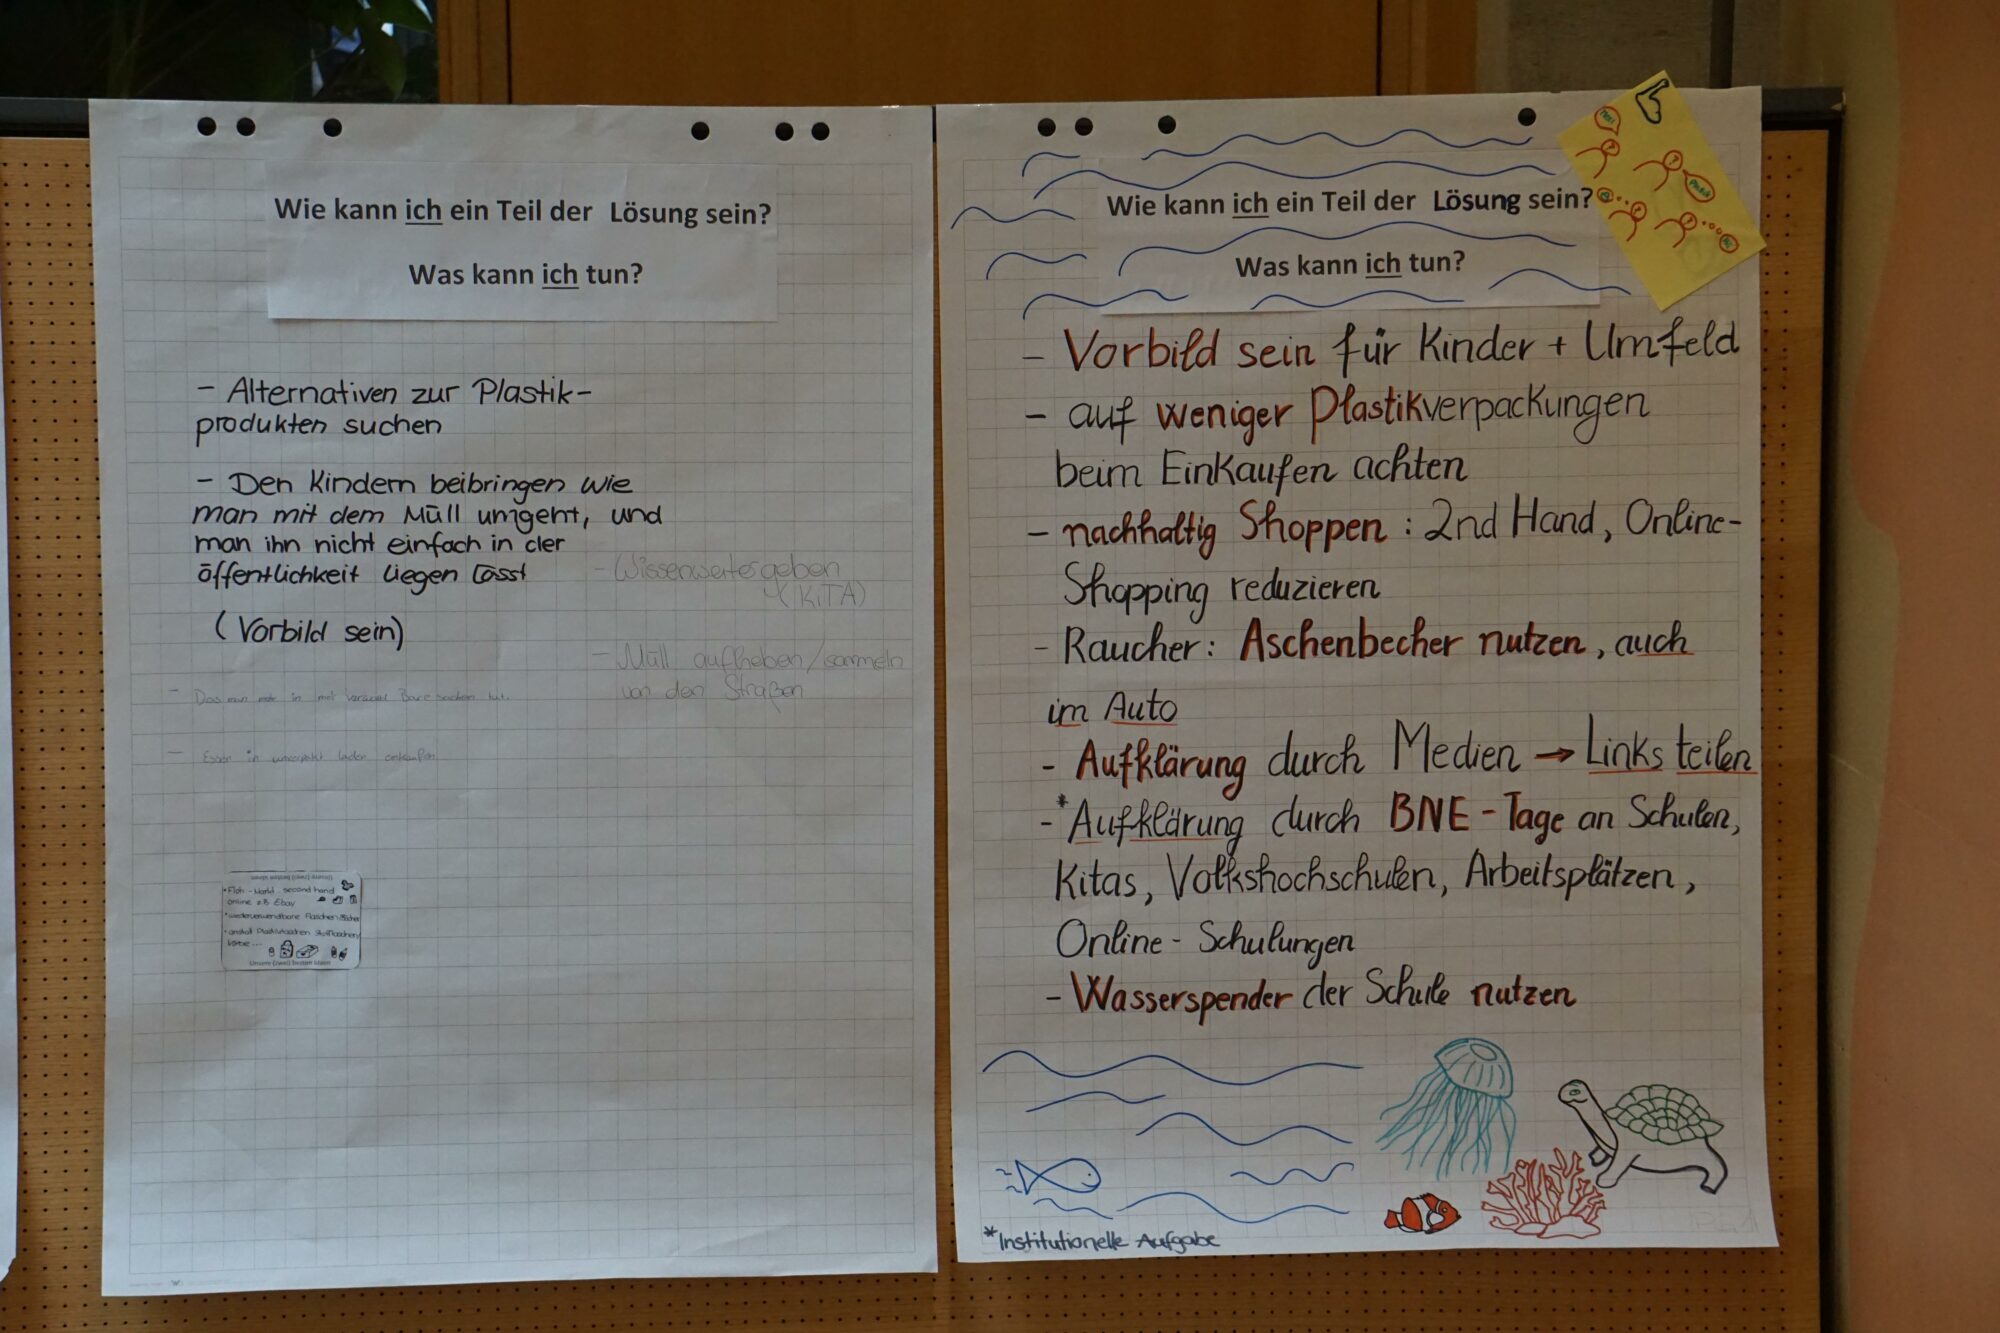 Wie kann ich ein Teil der Lösung sein?
Was kann ich tun?
- Alternativen zur Plastik-
produkten suchen
- Den Kindern beibringen wie
man mit dem Müll umgeht, und
man ihn nicht einfach in der
öffentlichkeit liegen lässt
(Vorbild sein)
- Wissen weitergeben
(KiTA)
- Müll aufheben/sammeln
von den Straßen
- Das man mehr in
- Essen in unverpackt laden einkaufen
Unsere (zwei) besten Ideen
• Floh-Markt second hand
online z.B Ebay
• wiederverwendbare Flaschen/Becher
• anstatt Plastiktaschen Stofftaschen/
Körbe ...
Unsere (zwei) besten Ideen
Wie kann ich ein Teil der Lösung sein?
Was kann ich tun?
Plastik
- Vorbild sein für Kinder + Umfeld
- auf weniger Plastikverpackungen
beim Einkaufen achten
- nachhaltig Shoppen: 2nd Hand, Online-
Shopping reduzieren
- Raucher: Aschenbecher nutzen, auch
im Auto
- Aufklärung durch Medien → Links teilen
-* Aufklärung durch BNE-Tage an Schulen,
Kitas, Volkshochschulen, Arbeitsplätzen,
Online-Schulungen
- Wasserspender der Schule nutzen
*Institutionelle Aufgabe